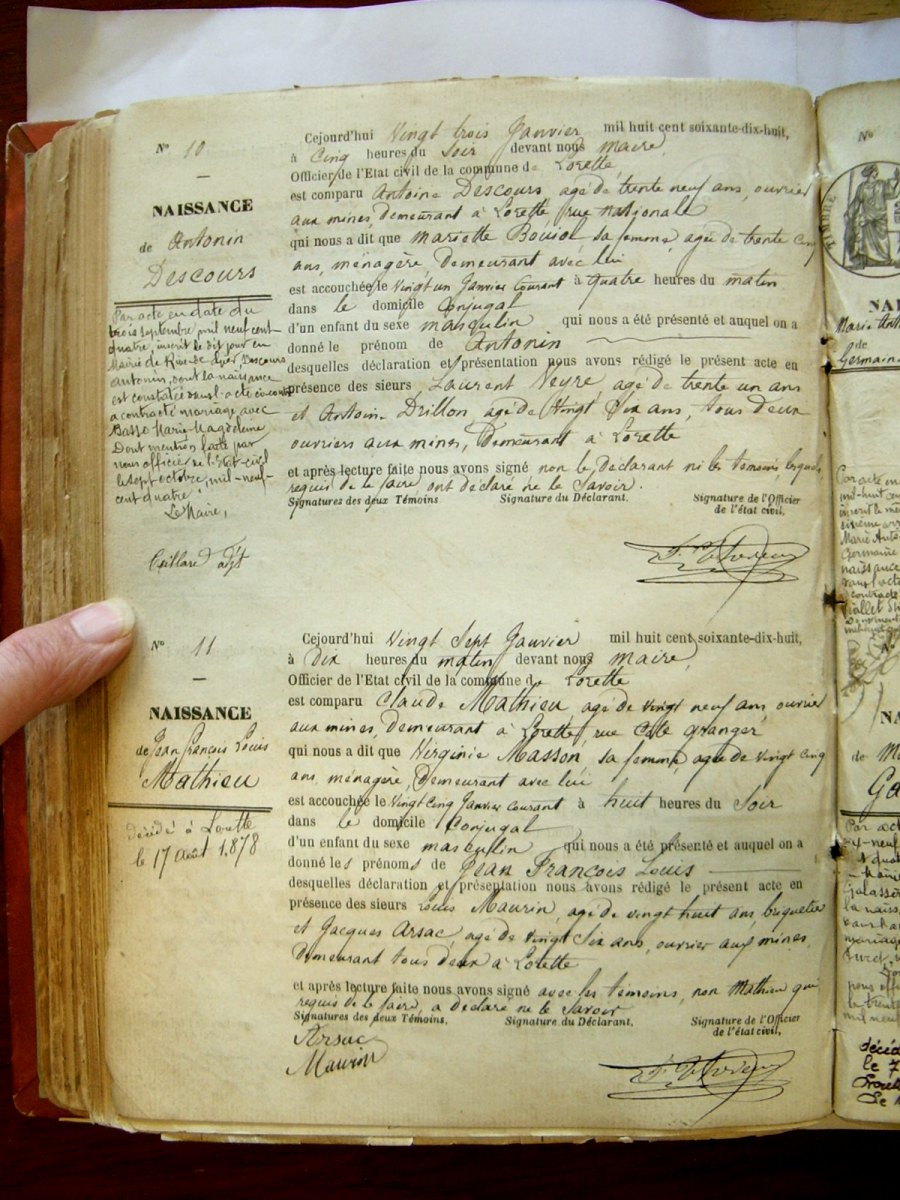 N° 10
NAISSANCE
de Antonin
Descours
Par acte en date du
trois septembre mil neuf cent
quatre, inscrit le dit jour en
Mairie de Rive de Gier, Descours
Antonin, dont la naissance
est constatée dans l'acte ci-contre
a contracté mariage avec
Basse Marie Magdeleine
Dont mention faite par
nous officier de l'Etat-civil
le sept octobre, mil-neuf-
cent quatre
Le Maire,
adjt
Cejourd'hui Vingt trois Janvier mil huit cent soixante-dix-huit,
à Cinq heures du Soir devant nous Maire,
Officier de l'Etat civil de la commune de Lorette
est comparu Antoine Descours, agé de trente neuf ans, ouvrier
aux mines, demeurant à Lorette, rue Nationale
qui nous a dit que Mariette Boujol sa femme, agée de trente cinq
ans, ménagère, Demeurant avec lui
est accouchée le Vingt un Janvier Courant à quatre heures du matin
dans le domicile Conjugal
d'un enfant du sexe masculin qui nous a été présenté et auquel on a
donné le prénom de Antonin
desquelles déclaration et présentation nous avons rédigé le présent acte en
présence des sieurs Laurent Neyre, agé de trente un ans
et Antoine Drillon agé de Vingt Six ans, tous deux
ouvriers aux mines, Demeurant à Lorette
et après lecture faite nous avons signé non le déclarant ni les témoins, lesquels
requis de le faire ont déclaré ne le Savoir.
Signatures des deux Témoins Signature du Déclarant. Signature de l'Officier
de l'état civil,
N° 11
NAISSANCE
de Jean François Louis
Mathieu
décédé à Lorette
le 17 août 1878
Cejourd'hui Vingt Sept Janvier mil huit cent soixante-dix-huit,
à Dix heures du matin devant nous Maire,
Officier de l'Etat civil de la commune de Lorette
est comparu Claude Mathieu agé de Vingt neuf ans, ouvrier
aux mines, demeurant à Lorette, rue Côte Granger
qui nous a dit que Virginie Masson, sa femme, agée de Vingt Cinq
ans, ménagère, Demeurant avec lui
est accouchée le Vingt Cinq Janvier Courant à huit heures du Soir
dans le domicile Conjugal
d'un enfant du sexe masculin qui nous a été présenté et auquel on a
donné les prénoms de Jean François Louis
desquelles déclaration et présentation nous avons rédigé le présent acte en
présence des sieurs Louis Maurin, agé de vingt huit ans, briquetier
et Jacques Arsac, agé de Vingt Six ans, ouvrier aux mines,
Demeurant tous deux à Lorette
et après lecture faite nous avons signé avec les témoins, non Mathieu qui
requis de le faire, a déclaré ne le Savoir
Signatures des deux Témoins. Signature du Déclarant. Signature de l'Officier
de l'état civil,
Arsac
Maurin
N°
TIMBRE
Marie
de
Germaine
Par acte